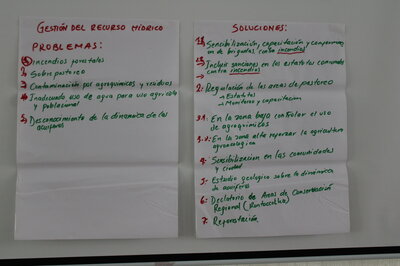 GESTIÓN DEL RECURSO HÍDRICO
PROBLEMAS:
1. incendios forestales
2. Sobre pastoreo
3. Contaminación por agroquímicos y residuos
4. Inadecuado uso de agua para uso agrícola
y poblacional
5. Desconocimiento de la dinámica de los
acuíferos
SOLUCIONES:
Sensibilización, capacitación y conformación
de brigadas contra incendios
Incluir sanciones en los estatutos comunales
contra incendios
2. Regulación de las areas de pastoreo
→ Estatutos
→ Monitoreo y capacitación
3.1. En la zona bajo controlar el uso
de agroquimicos
3.2. En la zona alta reforzar la agricultura
agroecológica
4. Sensibilizacion en las comunidades
y ciudad
5. Estudio geologico sobre la dinámica
de acuiferos
6. Declatoria de Areas de Conservación
Regional
7. Reforestación